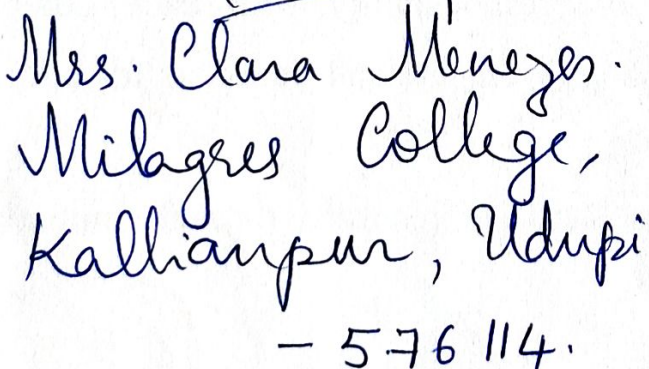 Mrs. Clara Menezes.
Milagres College,
Kallianpur, Udupi
- 576 114.